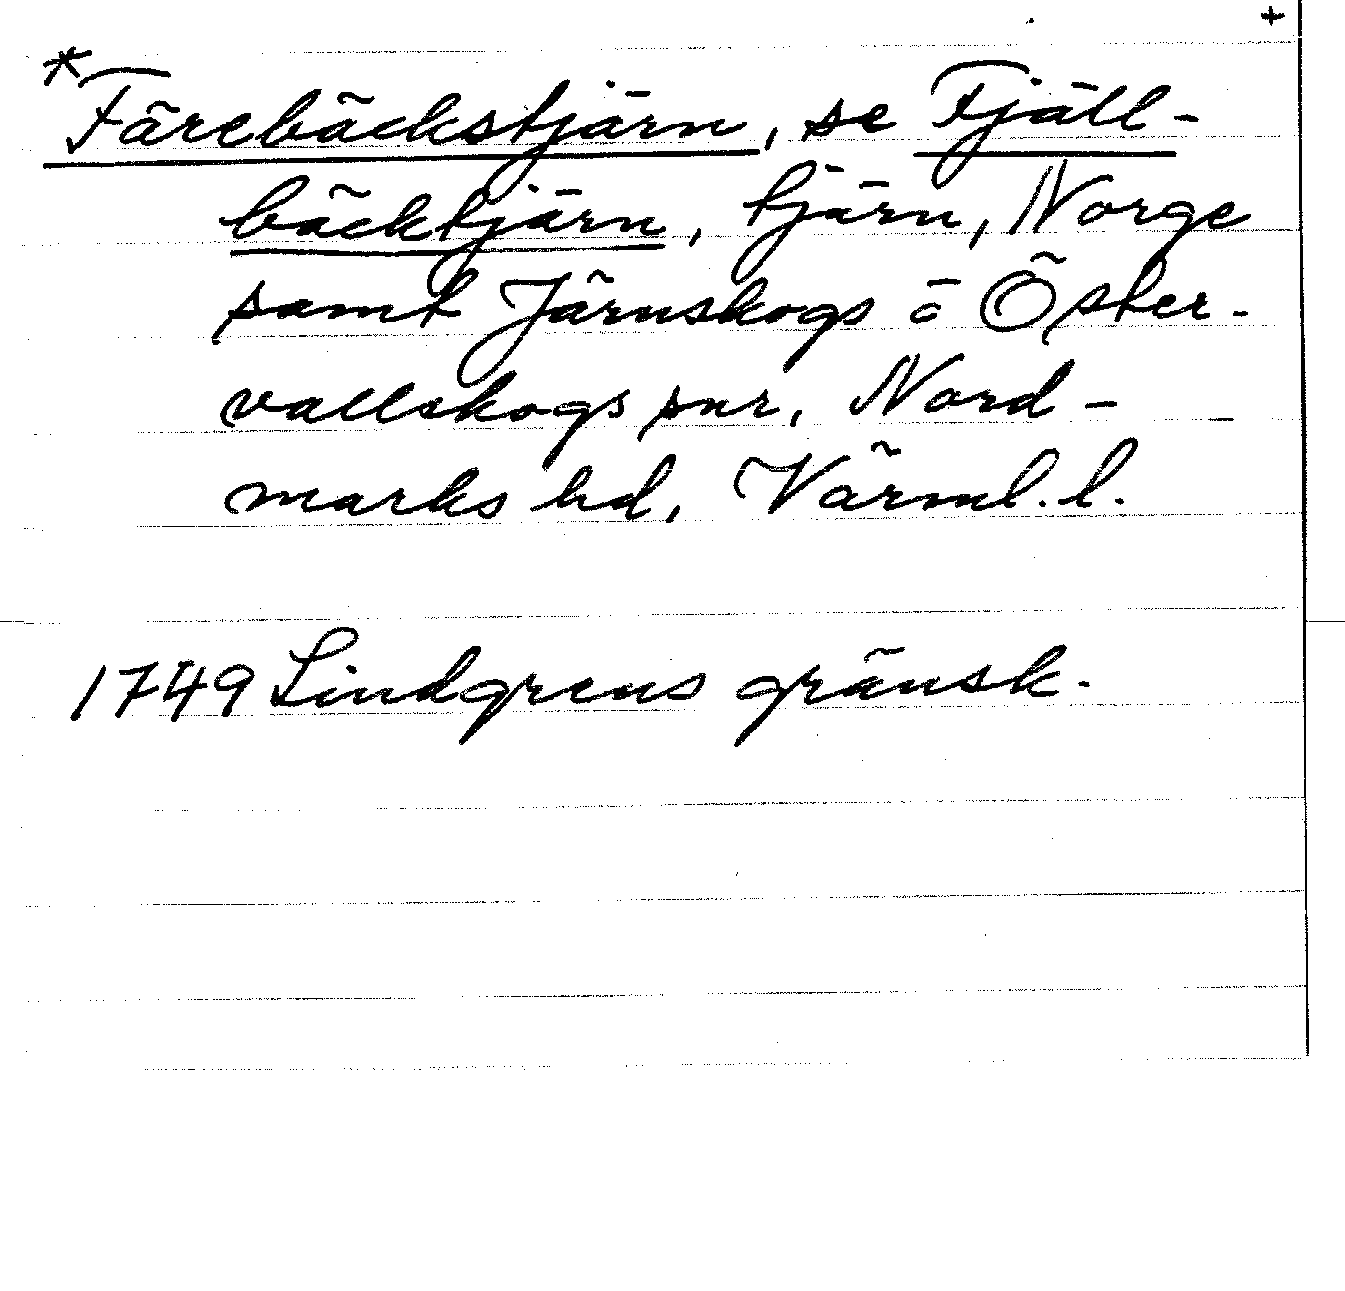 +
*Färebäckstjärn, se Fjäll-
bäcktjärn, tjärn, Norge
samt Järnskogs o Öster-
vallskogs snr, Nord-
marks hd, Värml. l.
1749 Lindgrens gränsk.